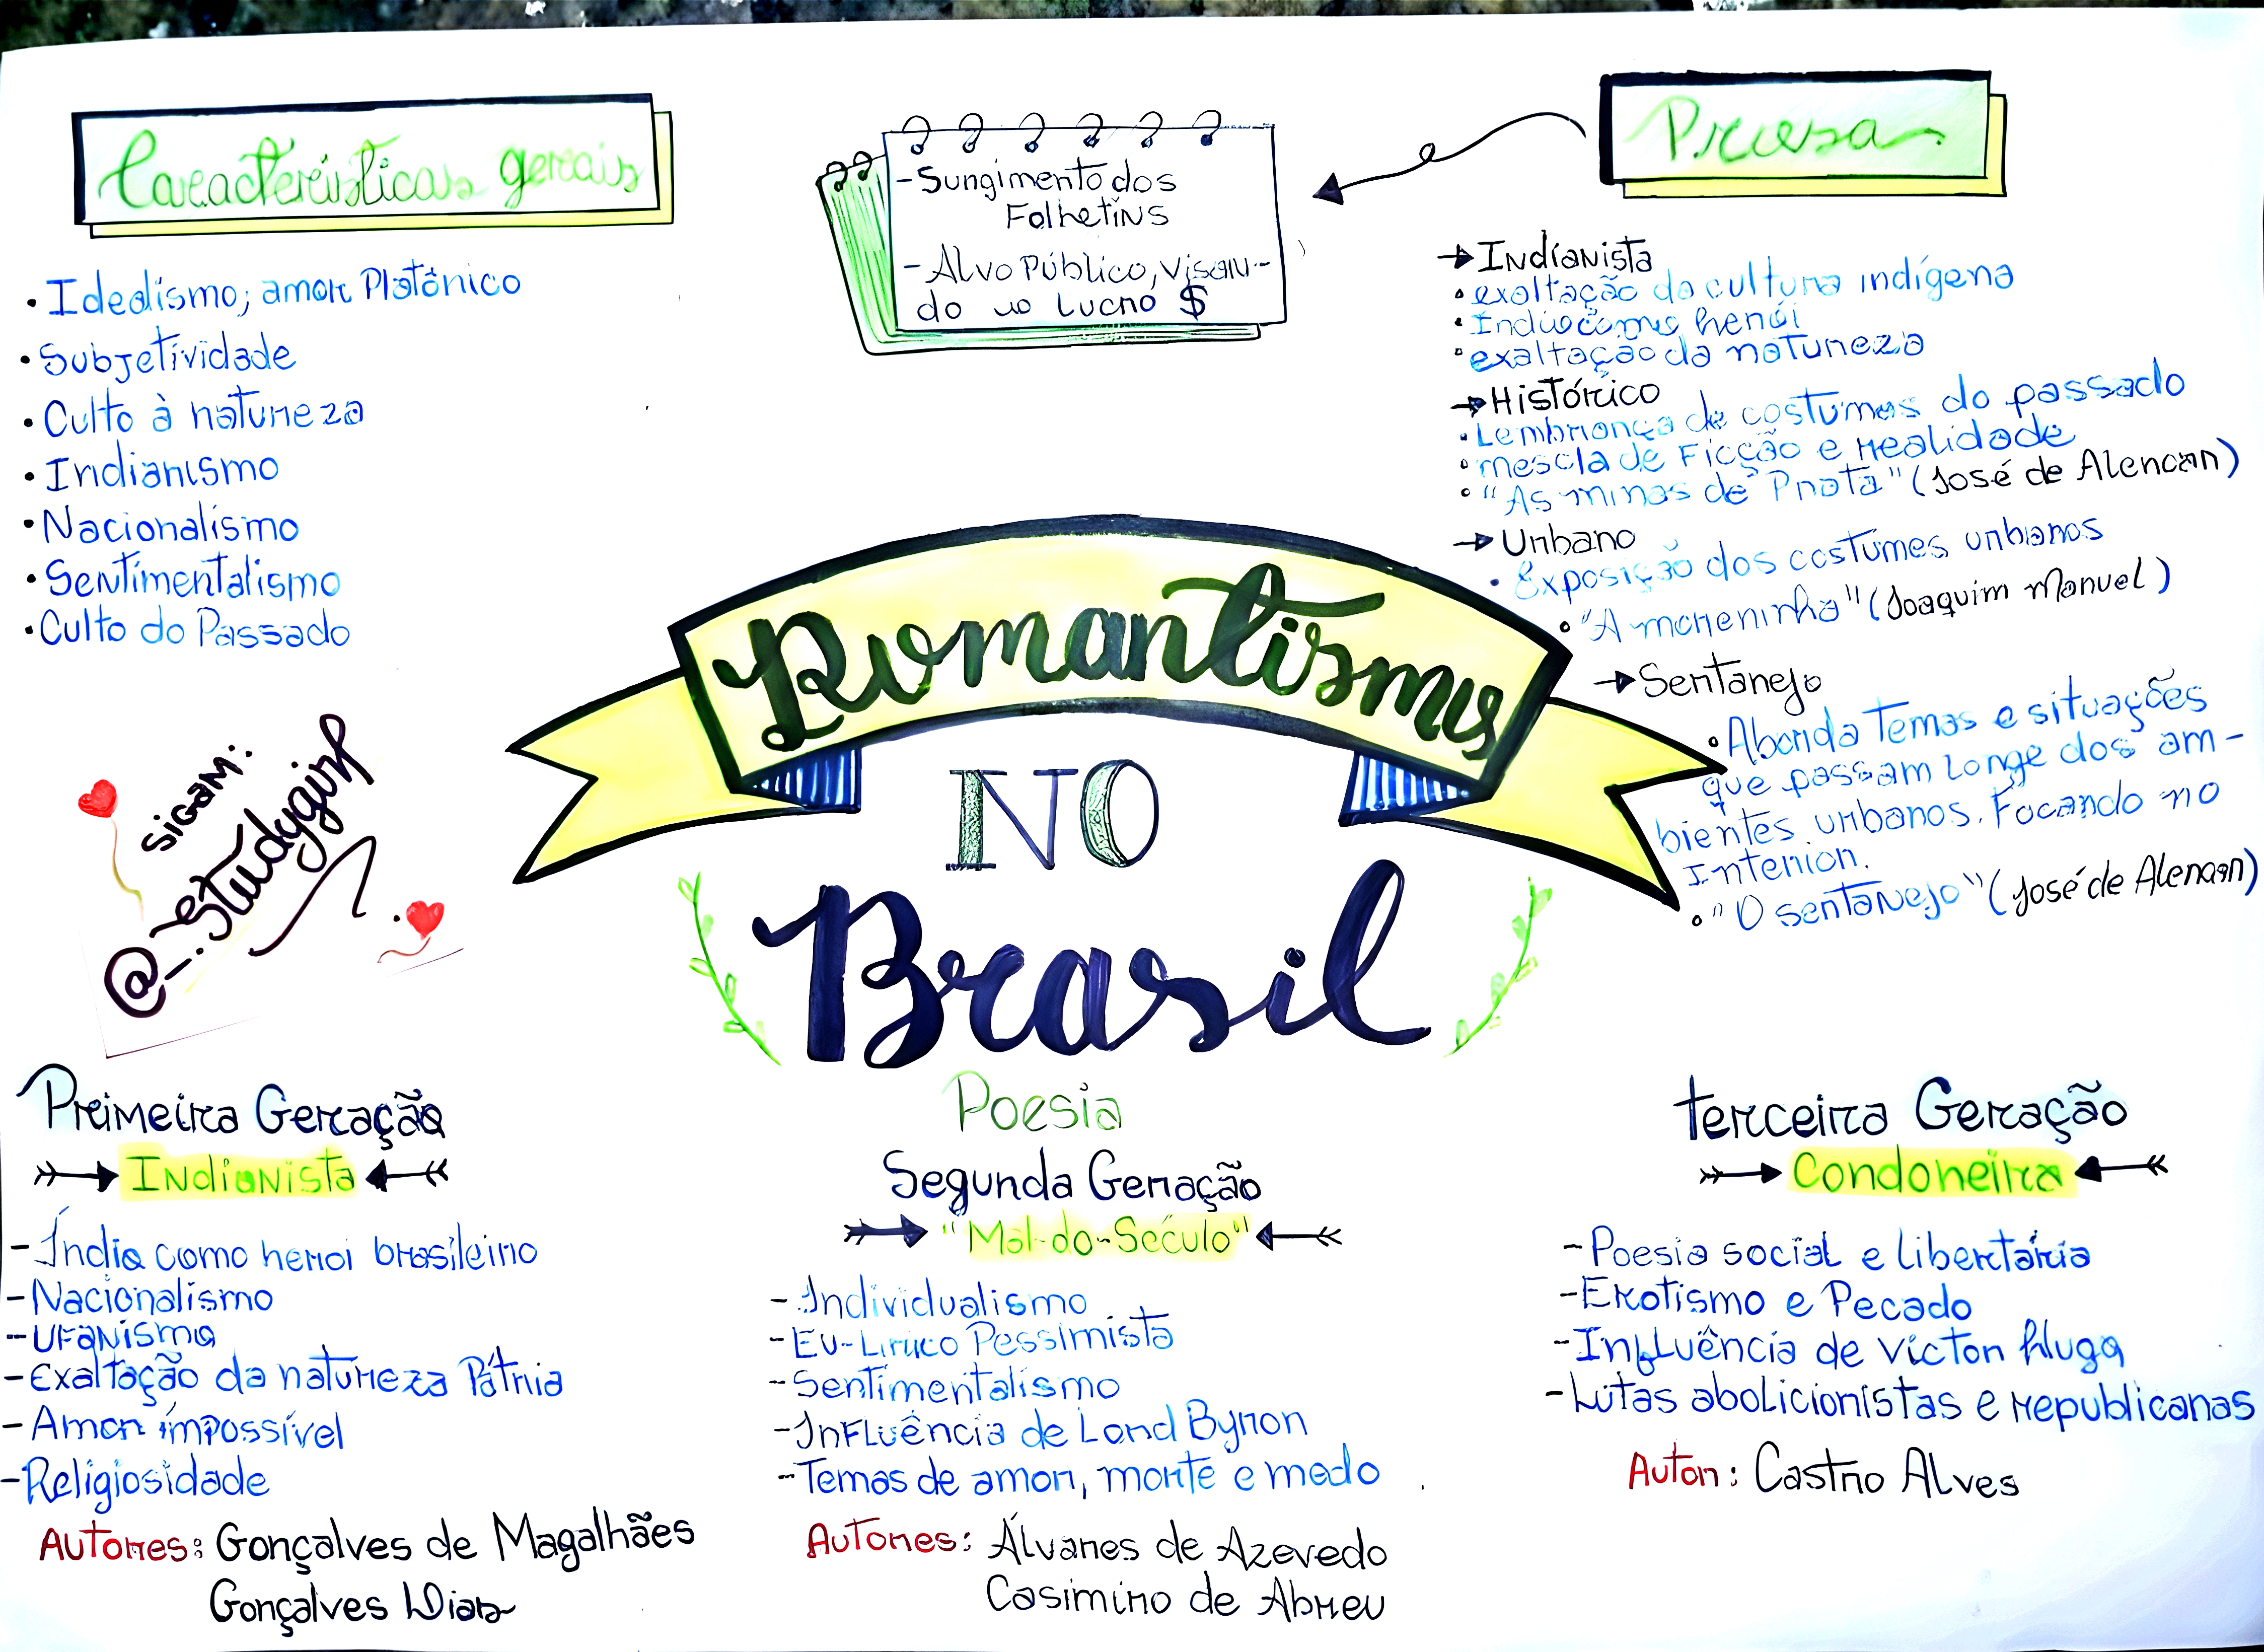 Características gerais
• Idealismo; amor Platônico
• Subjetividade
• Culto à natureza
• Indianismo
• Nacionalismo
• Sentimentalismo
• Culto do Passado
- Surgimento dos
Folhetins
- Alvo Público, visan-
do o lucro $
Prosa
→ Indianista
• exaltação da cultura indígena
• Índio como herói
• exaltação da natureza
→ Histórico
• Lembrança de costumes do passado
• mescla de Ficção e realidade
• "As minas de Prata" (José de Alencar)
→ Urbano
• Exposição dos costumes urbanos
• "A moreninha" (Joaquim Manuel)
→ Sertanejo
• Aborda Temas e situações
que passam longe dos am-
bientes urbanos. Focando no
Interior.
• "O sertanejo" (José de Alencar)
Romantismo
NO
Brasil
SIGAM:
@_.studygirl
Primeira Geração
Indianista
- Índio como heroi brasileiro
- Nacionalismo
- UFANismo
- Exaltação da natureza Pátria
- Amor impossível
- Religiosidade
Autores: Gonçalves de Magalhães
Gonçalves Dias
Poesia
Segunda Geração
"Mal-do-Século"
- Individualismo
- Eu-Lírico Pessimista
- Sentimentalismo
- Influência de Lord Byron
- Temas de amor, morte e medo
Autores: Álvares de Azevedo
Casimiro de Abreu
terceira Geração
Condoreira
- Poesia social e libertária
- Erotismo e Pecado
- Influência de victor Hugo
- Lutas abolicionistas e republicanas
Autor: Castro Alves